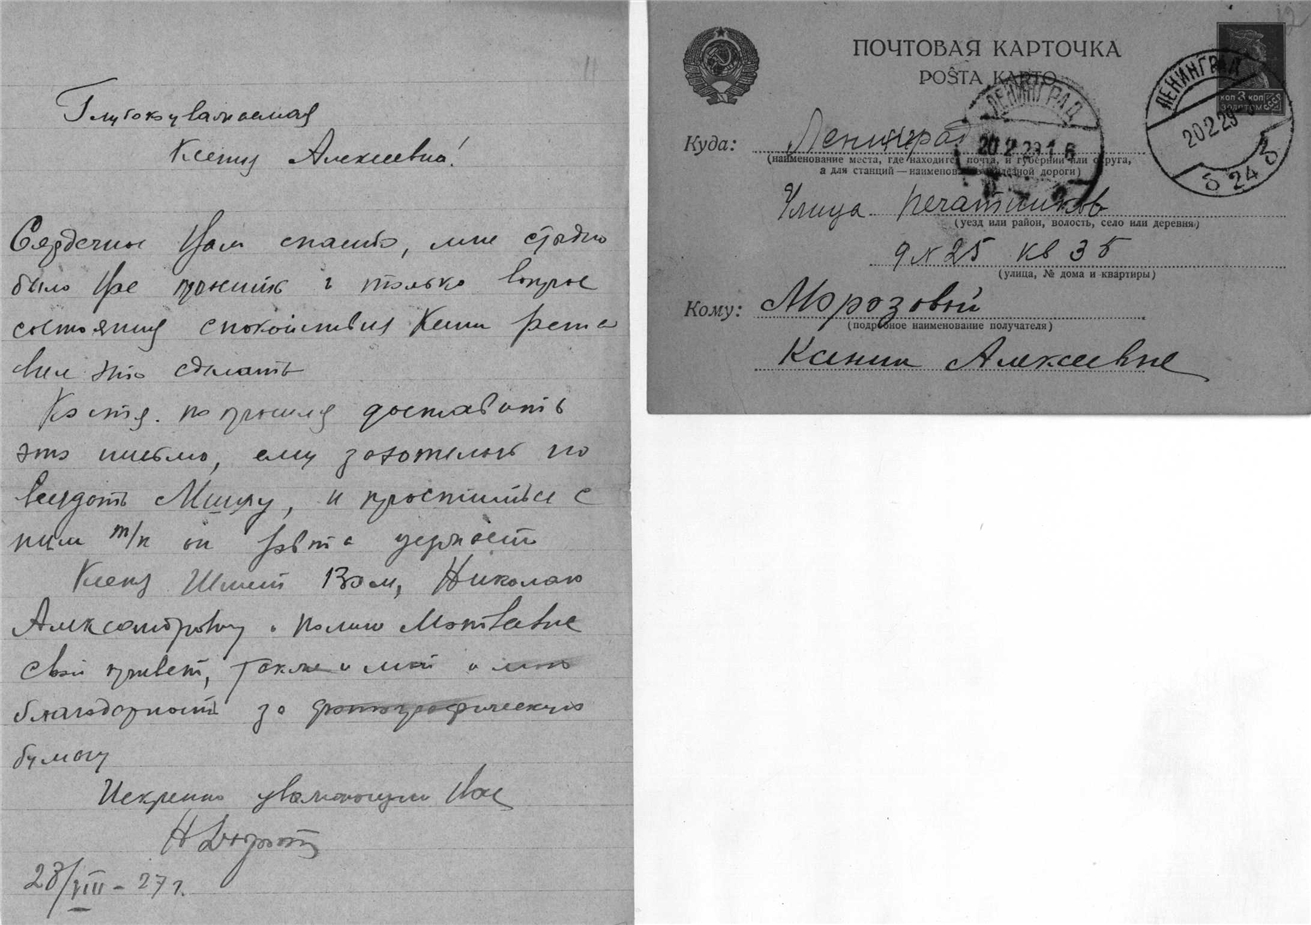 11
Глубокоуважаемая
Ксения Алексеевна!
Сердечное Вам спасибо, мне стыдно
было Вас просить и только вопрос
состояния спокойствия Кени заста
вил это сделать
Костя попросил доставить
это письмо, ему захотелось по
видать Мишу, и проститься с
ним т/к он завтра уезжает
Ксения Шлет Вам, Николаю
Александровичу и Полине Матвеевне
свой привет, также и мой и мою
благодарность за фотографическую
бумагу
Искренно уважающий Вас
28/VIII - 27 г.
12
ПОЧТОВАЯ КАРТОЧКА
POŜTA KARTO
ЛЕНИНГРАД
20 2 29 16
ЛЕНИНГРАД
20 2 29
24
КОП 3 КОП
ЗОЛОТОМ
Куда: Ленинград
(наименование места, где находится почта, и губернии или округа,
а для станций — наименование железной дороги)
Улица Печатников
(уезд или район, волость, село или деревня)
д № 25 кв 35
(улица, № дома и квартиры)
Кому: Морозовой
(подробное наименование получателя)
Ксении Алексеевне